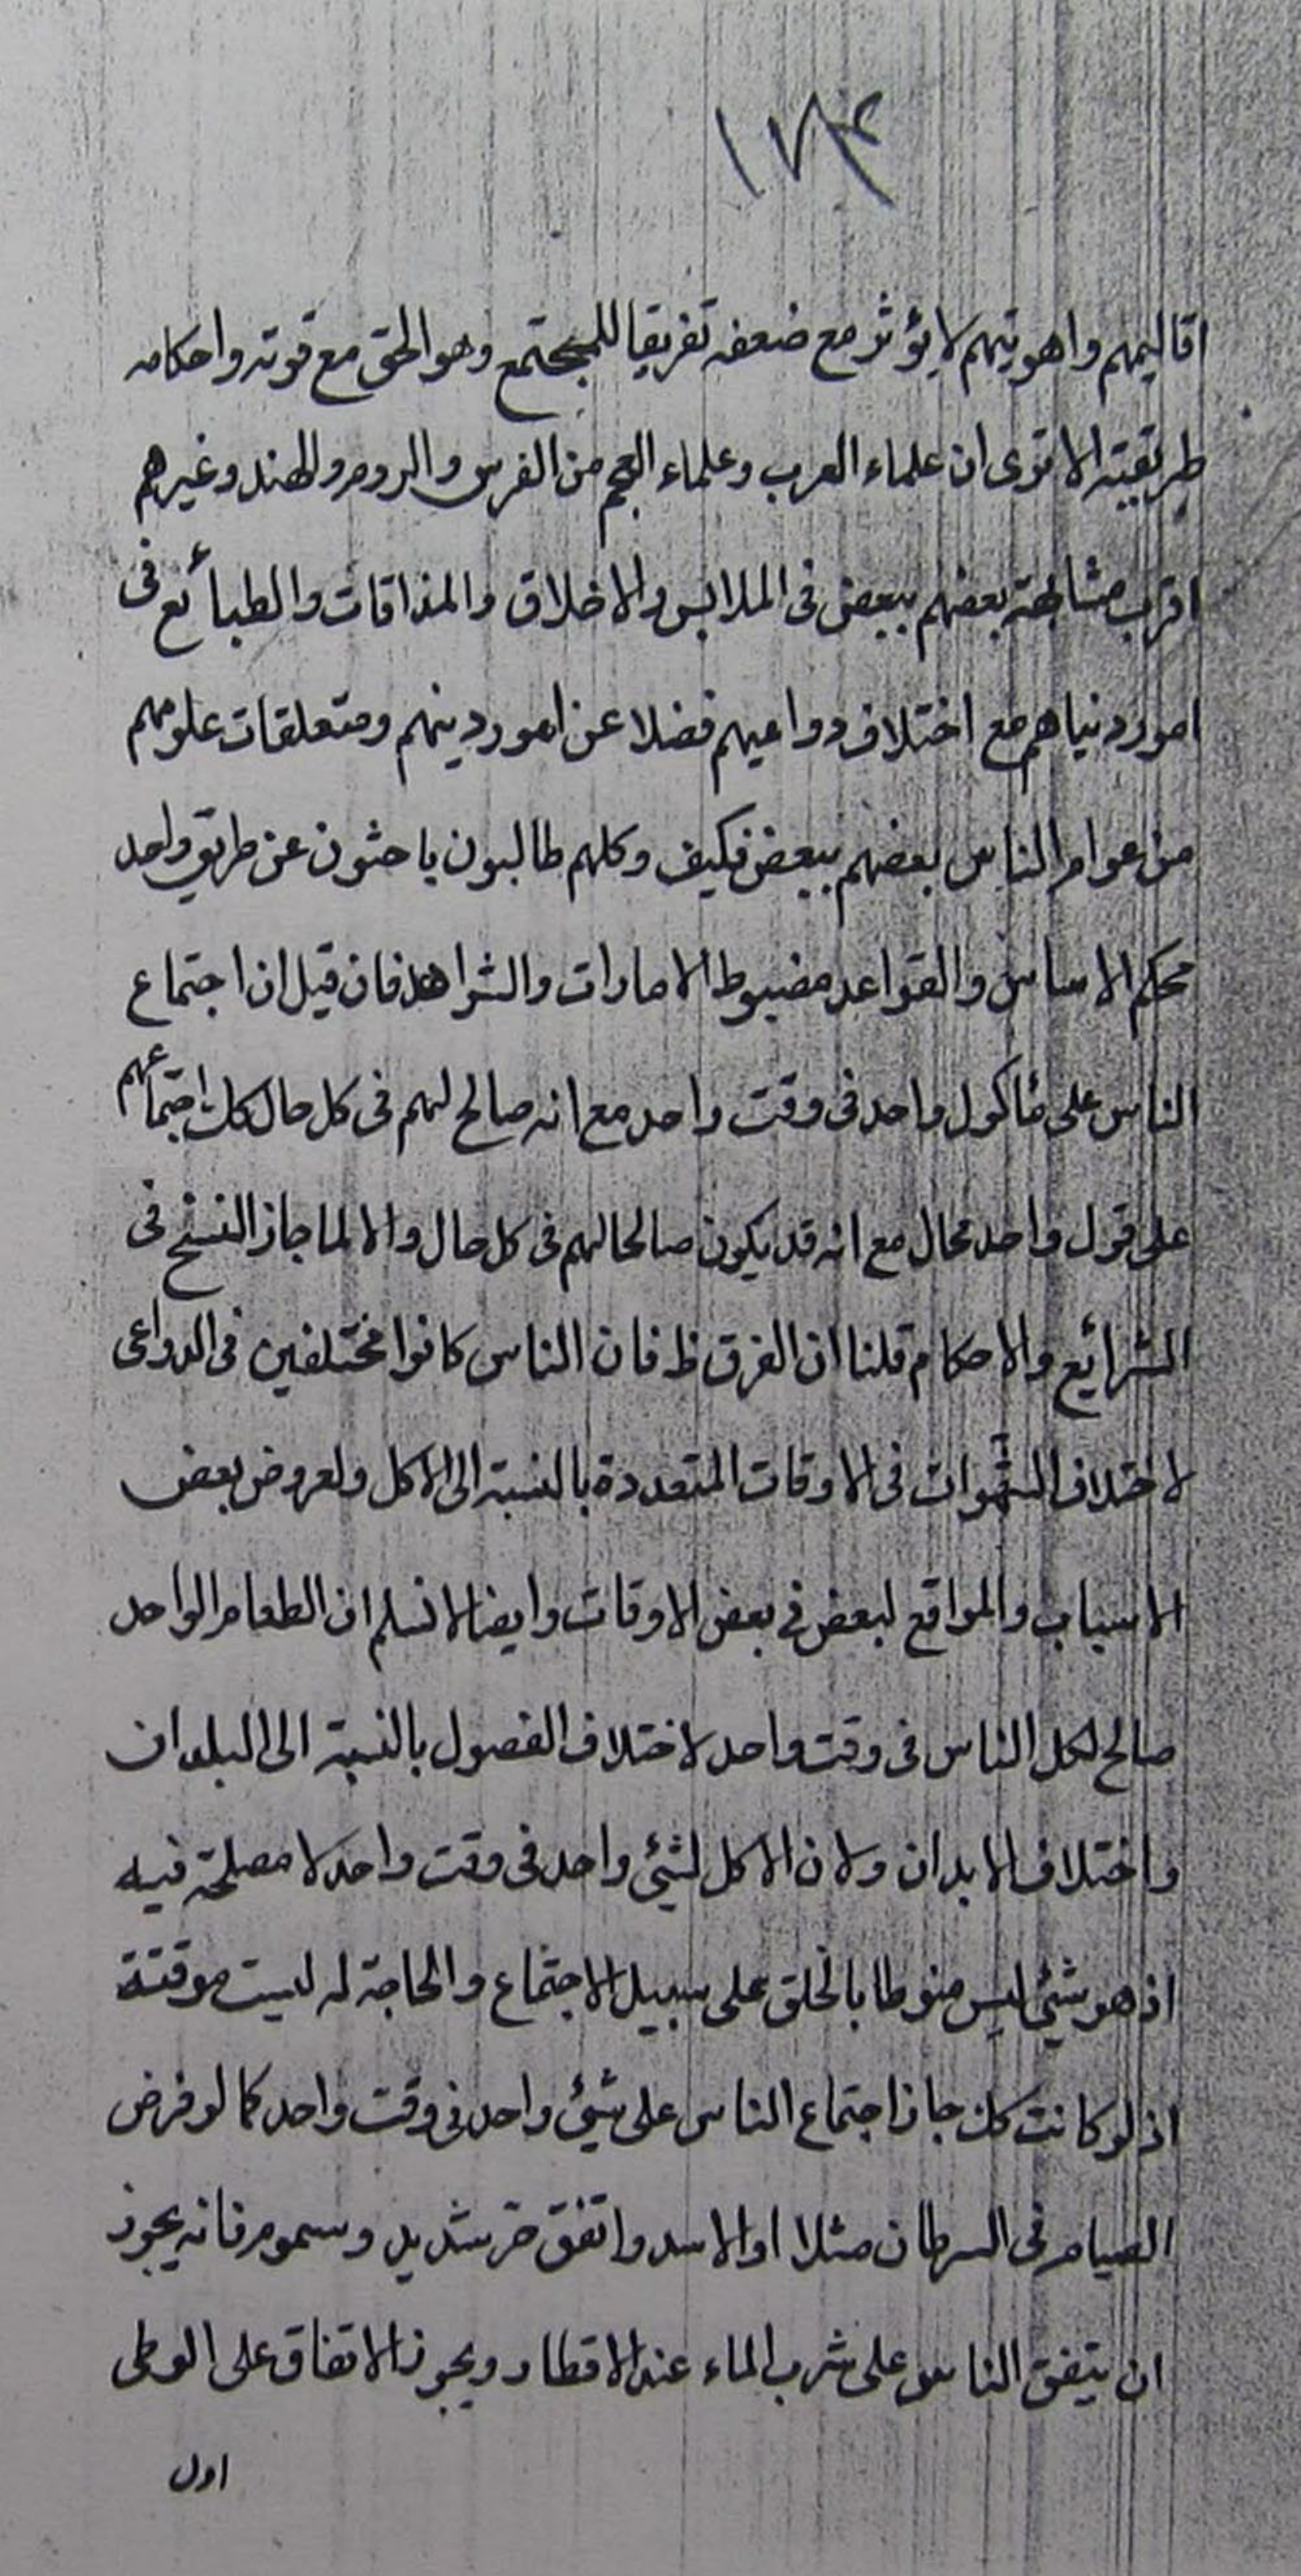 ١٧٤
اقاليمهم واهويتهم لا يؤثر مع ضعفه تفريقا للمجتمع وهو الحق مع قوته واحكامه
طريقيته الا ترى ان علماء العرب وعلماء العجم من الفرس والروم والهند وغيرهم
اقرب مشابهة بعضهم ببعض فى الملابس والاخلاق والمذاقات والطبائع فى
امور دنياهم مع اختلاف دواعيهم فضلا عن امور دينهم ومتعلقات علومهم
من عوام الناس بعضهم ببعض فكيف وكلهم طالبون باحثون عن طريق واحد
محكم الاساس والقواعد مضبوط الامارات والشواهد فان قيل ان اجتماع
الناس على مأكول واحد فى وقت واحد مع انه صالح لهم فى كل حال كك اجتماعهم
على قول واحد محال مع انه قد يكون صالحا لهم فى كل حال والا لما جاز النسخ فى
الشرائع والاحكام قلنا ان الفرق ظ فان الناس كانوا مختلفين فى الدواعى
لاختلاف الشهوات فى الاوقات المتعددة بالنسبة الى الاكل ولعروض بعض
الاسباب والمواقع لبعض فى بعض الاوقات وايضا لا نسلم ان الطعام الواحد
صالح لكل الناس فى وقت واحد لاختلاف الفصول بالنسبة الى البلدان
واختلاف الابدان ولان الاكل لشئ واحد فى وقت واحد لا مصلحة فيه
اذ هو شئ ليس منوطا بالخلق على سبيل الاجتماع والحاجة له ليست موقتة
اذ لو كانت كك جاز اجتماع الناس على شئ واحد فى وقت واحد كما لو فرض
الصيام فى السرطان مثلا او الاسد واتفق حر شديد وسموم فانه يجوز
ان يتفق الناس على شرب الماء عند الافطار ويجوز الاتفاق على الوطى
اول